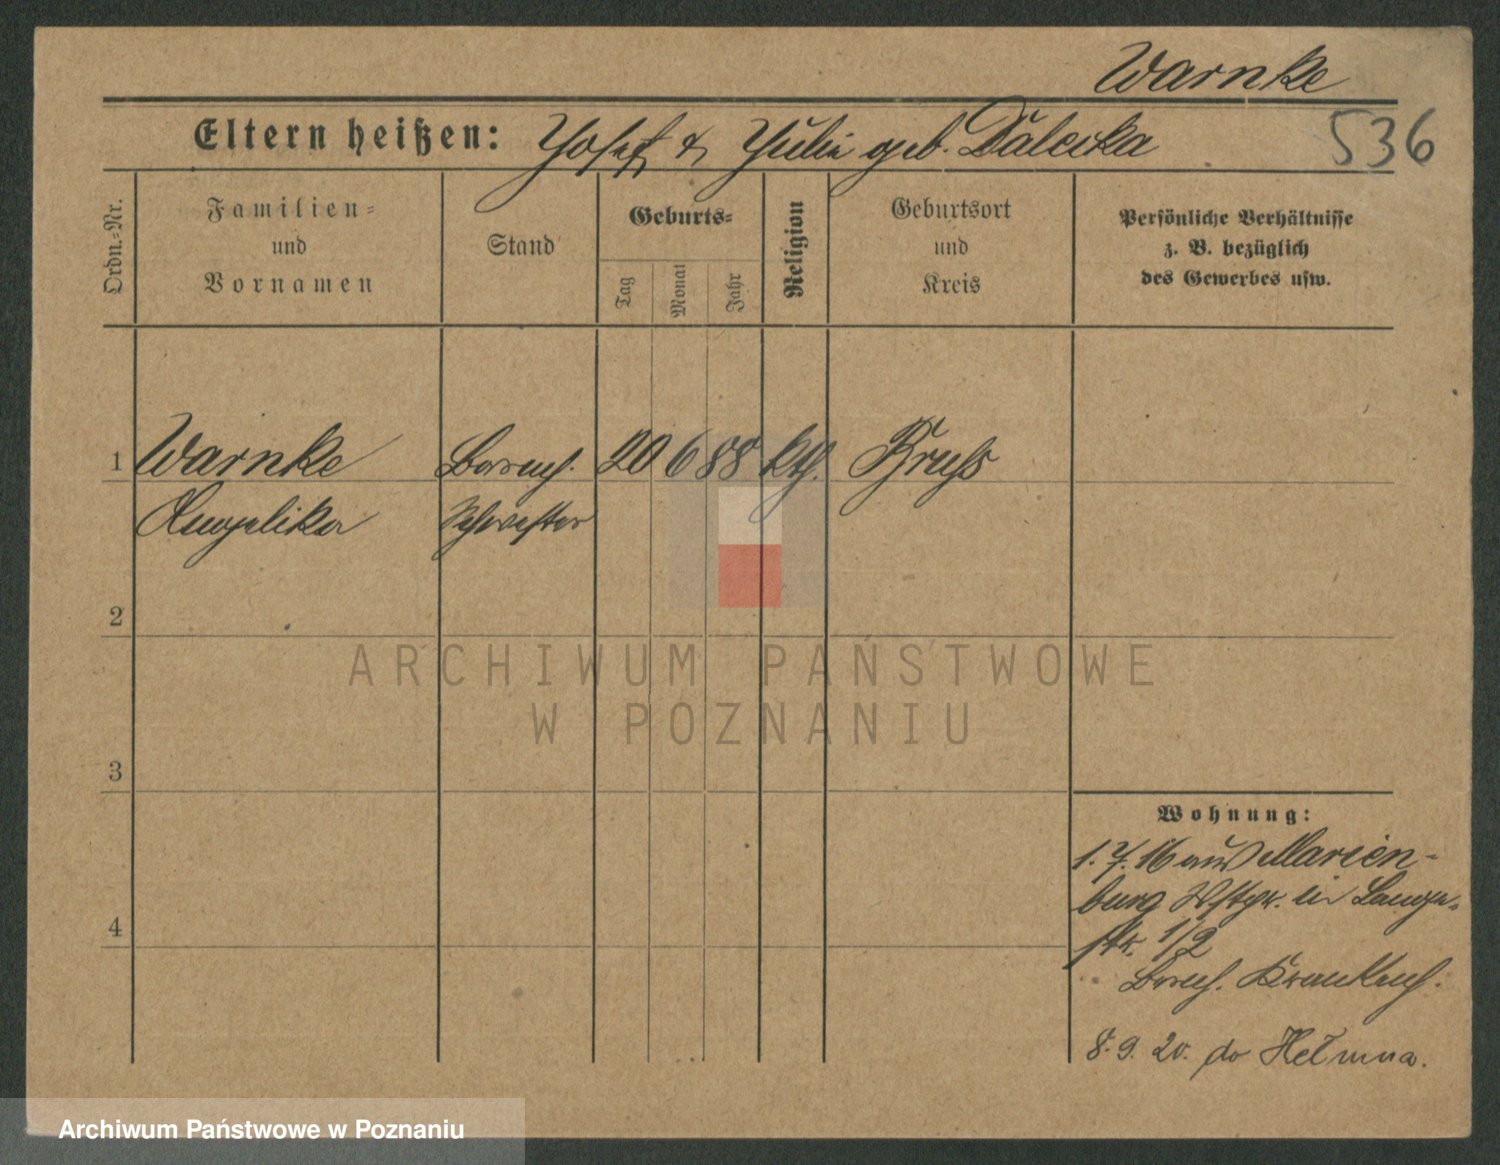 Warnke
Eltern heißen: Josef & Julie geb. Dalecka
536
Ordn.-Nr.
Familien-
und
Vornamen
Stand
Geburts-
Tag
Monat
Jahr
Religion
Geburtsort
und
Kreis
Persönliche Verhältnisse
z. B. bezüglich
des Gewerbes usw.
1 Warnke Barmh. 20 6 88 kth. Bruss
Angelika Schwester
2
ARCHIWUM PAŃSTWOWE
W POZNANIU
3
Wohnung:
1. 7. 16 aus Marien-
burg Wstpr. in Lange-
str. 1/2
Barmh. Krankenh.
4
8. 9. 20. do Hełmna.
Archiwum Państwowe w Poznaniu